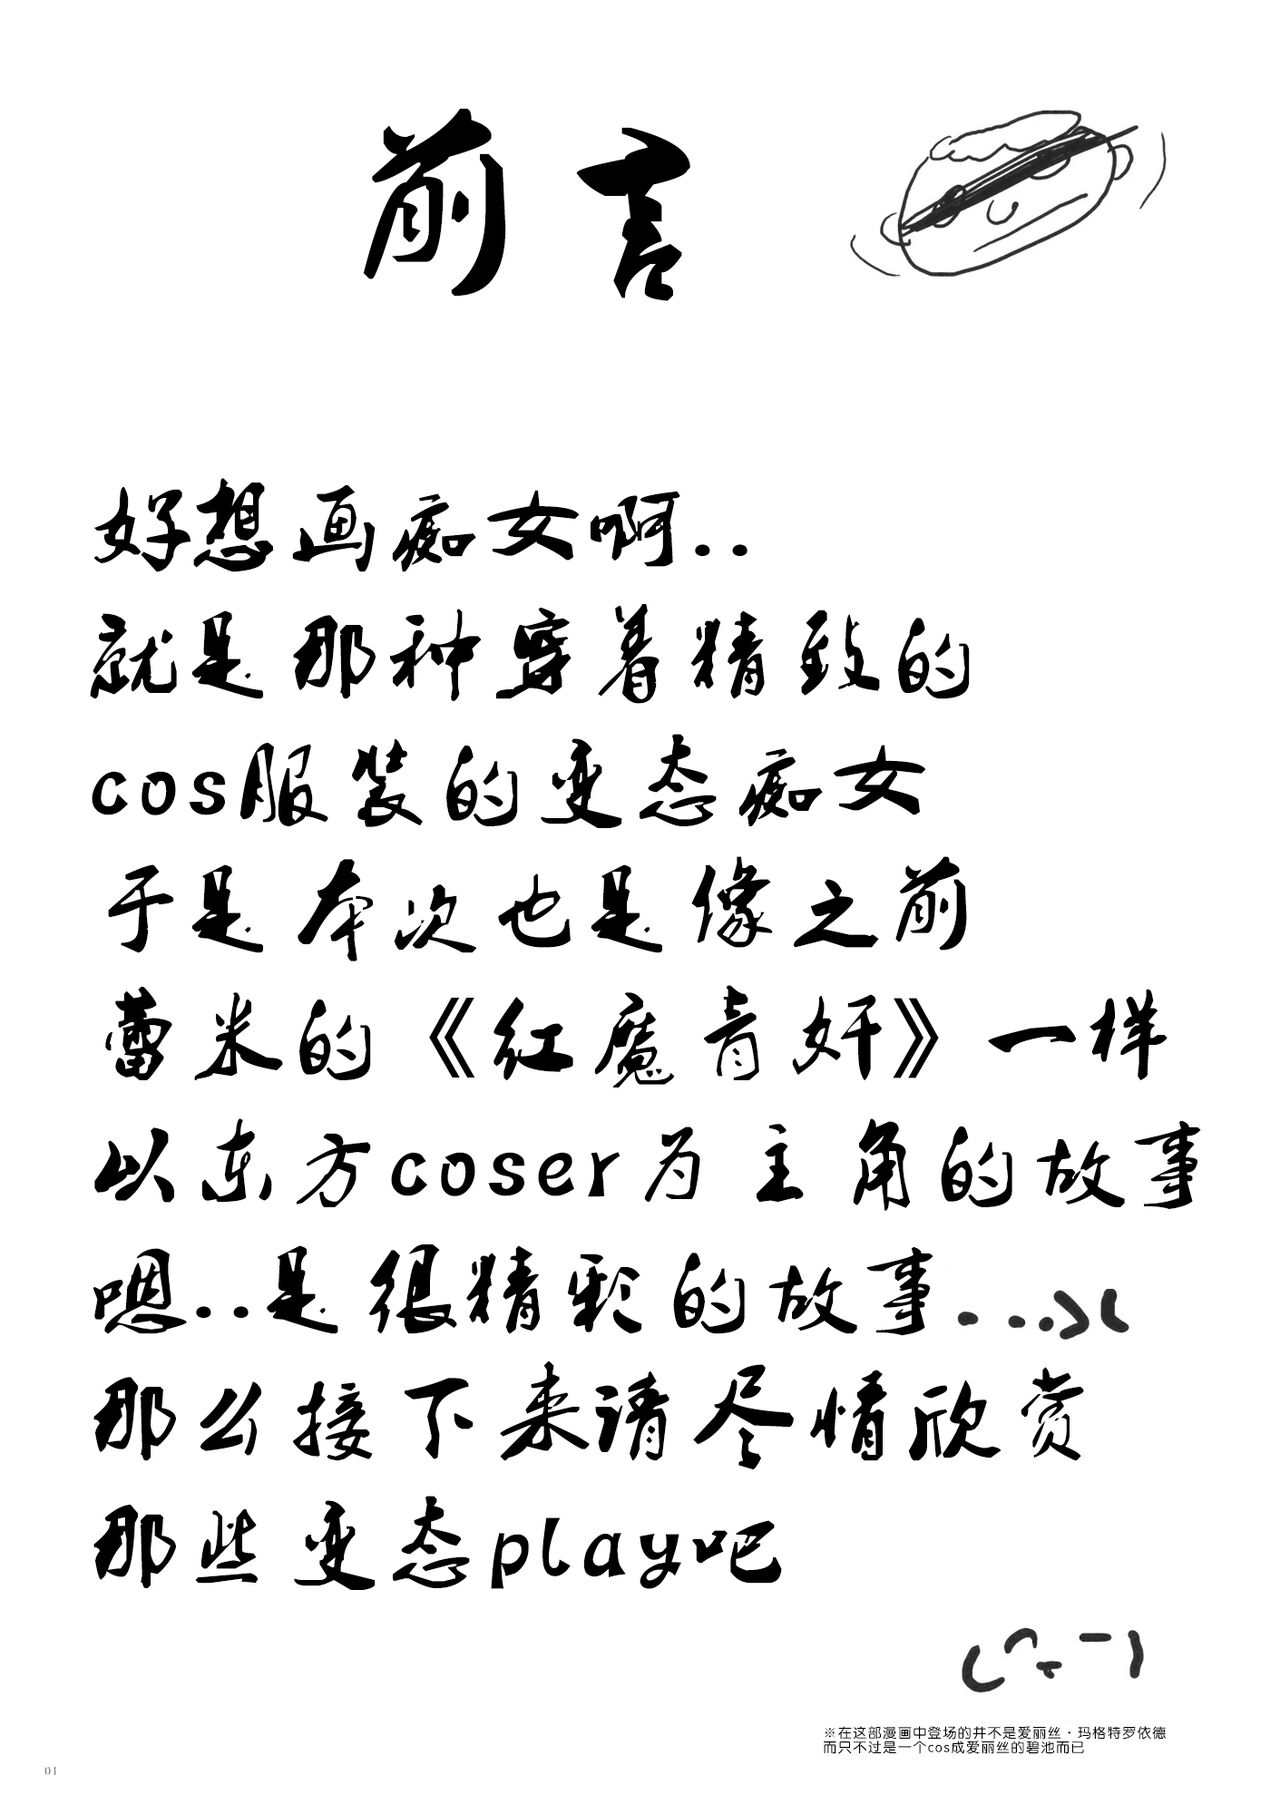 前言
好想画痴女啊..
就是那种穿着精致的
cos服装的变态痴女
于是本次也是像之前
蕾米的《红魔青奸》一样
以东方coser为主角的故事
嗯..是很精彩的故事.....
那么接下来请尽情欣赏
那些变态play吧
※在这部漫画中登场的并不是爱丽丝·玛格特罗依德
而只不过是一个cos成爱丽丝的碧池而已
01